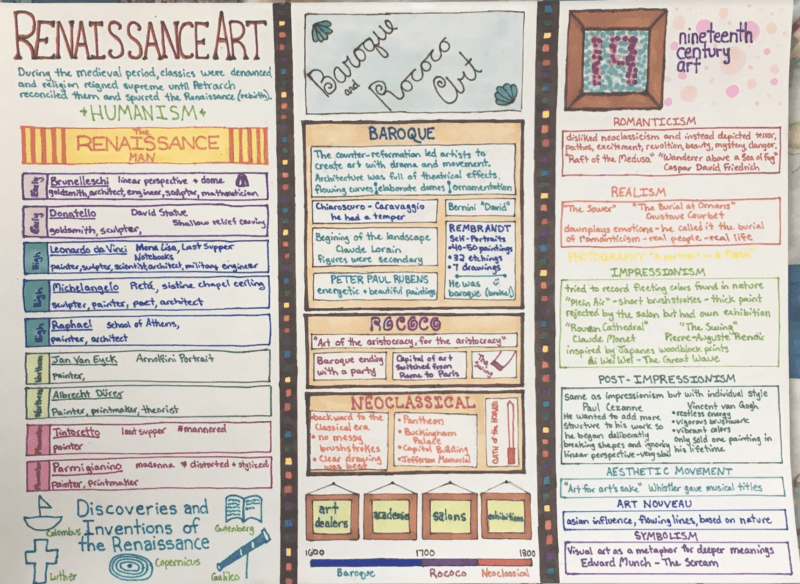 RENAISSANCE ART
During the medieval period, classics were denounced
and religion reigned supreme until Petrarch
reconciled them and spurred the Renaissance (rebirth).
+HUMANISM+
The
RENAISSANCE
MAN
Early
Brunelleschi linear perspective + dome
goldsmith, architect, engineer, sculptor, mathematician
Early
Donatello David Statue
goldsmith, sculptor, Shallow relief carving
High
Leonardo da Vinci Mona Lisa, Last Supper
Notebooks
painter, sculptor, scientist, architect, military engineer
High
Michelangelo Pietá, sistine chapel ceiling
sculptor, painter, poet, architect
High
Raphael School of Athens,
painter, architect
Northern
Jan Van Eyck Arnolfini Portrait
painter,
Northern
Albrecht Dürer
Painter, printmaker, theorist
Mannerist
Tintoretto last supper #mannered
painter
Mannerist
Parmigianino madonna → distorted + stylized
painter, printmaker
Discoveries and
Inventions of
the Renaissance
Columbus
Gutenberg
Luther
Copernicus
Galileo
Baroque
and Rococo
Art
BAROQUE
The counter-reformation led artists to
create art with drama and movement.
Architecture was full of theatrical effects.
flowing curves | elaborate domes | ornamentation
Chiaroscuro - Caravaggio
he had a temper
Bernini "David"
Begining of the landscape
Claude Lorain
figures were secondary
REMBRANDT
Self-Portraits
•40-50 paintings
•32 etchings
•7 drawings
He was
baroque (broke!)
PETER PAUL RUBENS
energetic + beautiful paintings
ROCOCO
"Art of the aristocracy, for the aristocracy"
Baroque ending
with a party
Capital of art
switched from
Rome to Paris
The
Swing
NEOCLASSICAL
•backward to the
Classical era
• no messy
brushstrokes
• Clear drawing
was best
• Pantheon
• Buckingham
Palace
• Capitol Building
• Jefferson Memorial
OATH of the HORATII
art
dealers
academies
salons
exhibitions
1600 1700 1800
Baroque Rococo Neoclassical
19
nineteenth
century
art
ROMANTICISM
disliked neoclassicism and instead depicted terror,
pathos, excitement, revolution, beauty, mystery, danger.
"Raft of the Medusa" "Wanderer above a Sea of Fog"
Caspar David Friedrich
REALISM
"The Sower" "The Burial at Ornans"
Gustave Courbet
downplays emotions - he called it the burial
of romanticism - real people - real life
PHOTOGRAPHY "A portrait in a flash!"
IMPRESSIONISM
tried to record fleeting colors found in nature
"Plein Air" - short brushstrokes - thick paint
rejected by the salon but had own exhibition
"Rouen Cathedral" "The Swing"
Claude Monet Pierre-Auguste Renoir
inspired by Japanes woodblock prints
Ai Wei Wei - The Great Wave
POST-IMPRESSIONISM
same as impressionism but with individual style
Paul Cezanne Vincent van Gogh
He wanted to add more •restless energy
structure to his work so •vigorous brushwork
he began deliberatly •vibrant colors
breaking shapes and ignoring only sold one painting in
linear perspective - very slow his lifetime
AESTHETIC MOVEMENT
"Art for art's sake" Whistler gave musical titles
ART NOUVEAU
asian influence, flowing lines, based on nature
SYMBOLISM
Visual art as a metaphor for deeper meanings
Edvard Munch - The Scream